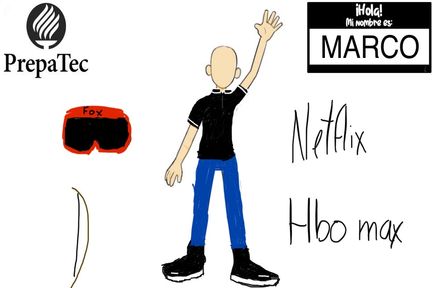 PrepaTec
¡Hola!
Mi nombre es:
MARCO
Fox
Netflix
Hbo max